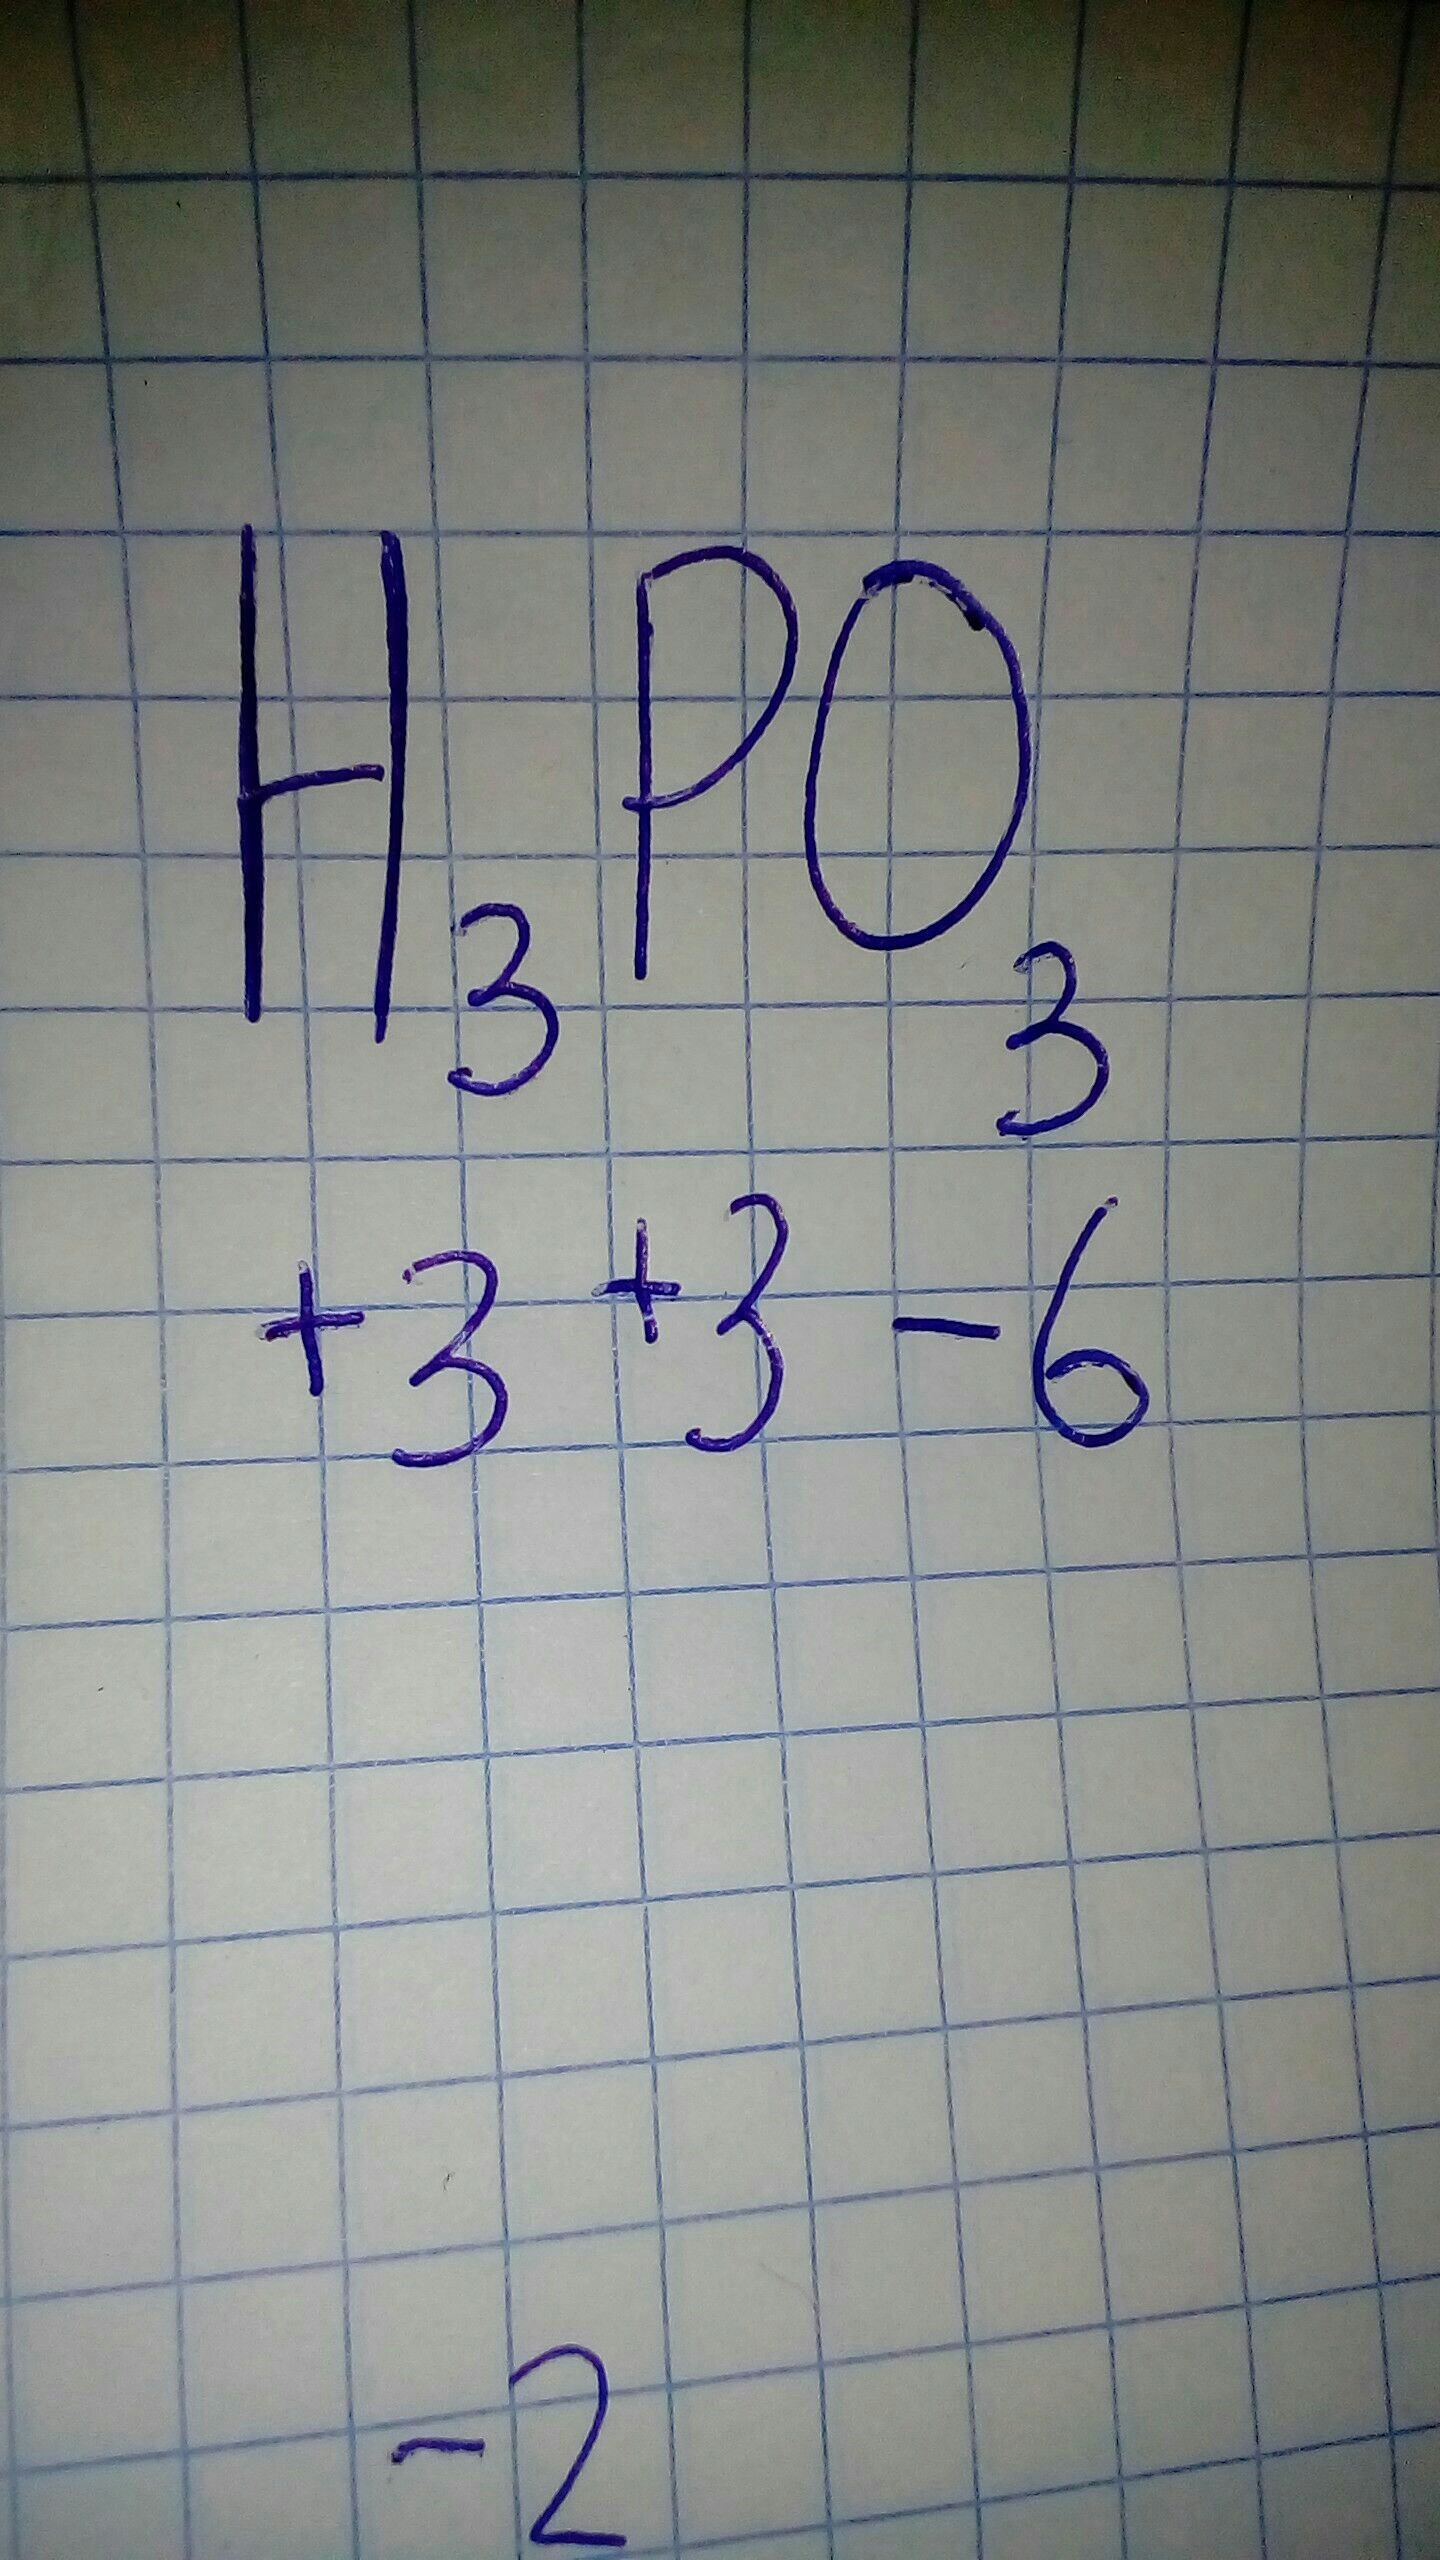 H₃PO₃
+3 +3 -6
-2